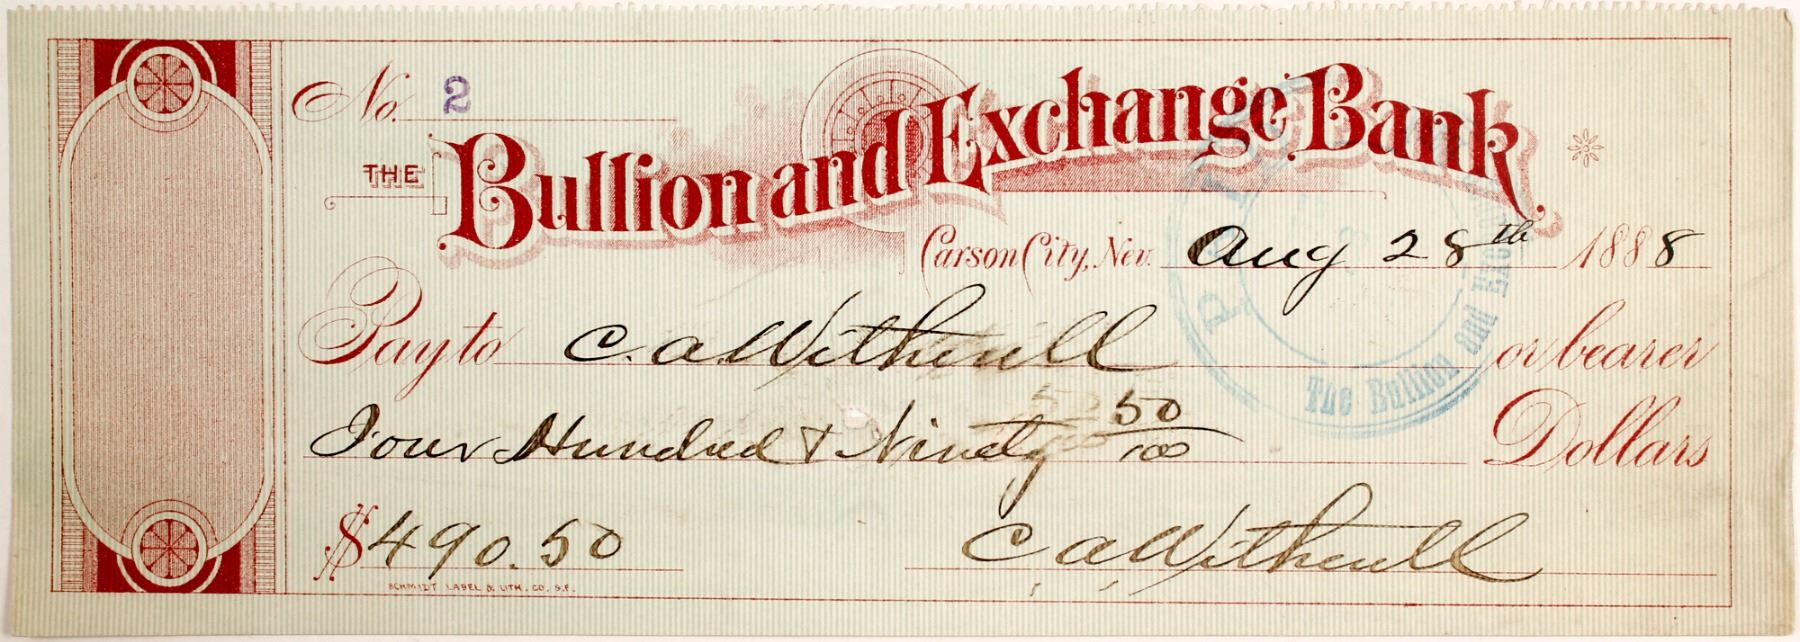 No. 2
THE Bullion and Exchange Bank
Carson City, Nev. Aug 28th 1888
Pay to C. A. Witherell or bearer
Four Hundred & Ninety 50/100 Dollars
$490.50
C A Witherell
SCHMIDT LABEL & LITH. CO. S.F.
The Bullion and